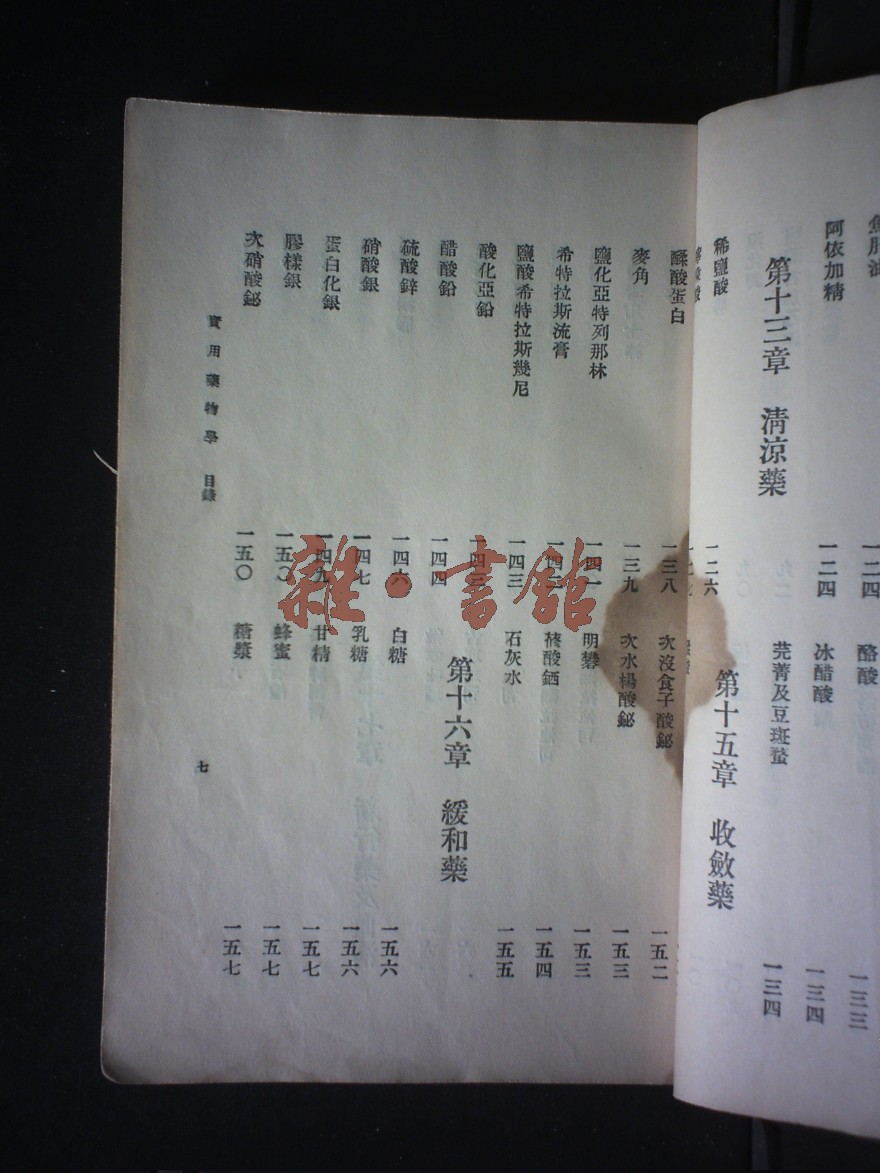 魚肝油
一二四
阿依加精
一二四
第十三章 清涼藥
稀鹽酸
一二六
酪酸
一三三
冰醋酸
一三四
芫菁及豆斑蝥
一三四
第十五章 收斂藥
鞣酸蛋白
一三八
麥角
一三九
鹽化亞特列那林
一四一
希特拉斯流膏
鹽酸希特拉斯幾尼
一四三
酸化亞鉛
醋酸鉛
一四四
硫酸鋅
一四六
硝酸銀
一四七
蛋白化銀
一四九
膠樣銀
一五〇
次硝酸鉍
一五〇
次沒食子酸鉍
一五二
次水楊酸鉍
一五三
明礬
一五三
一五四
石灰水
一五五
第十六章 緩和藥
白糖
一五六
乳糖
一五六
甘精
一五七
蜂蜜
一五七
糖漿
一五七
實用藥物學 目錄
七
雜·書館